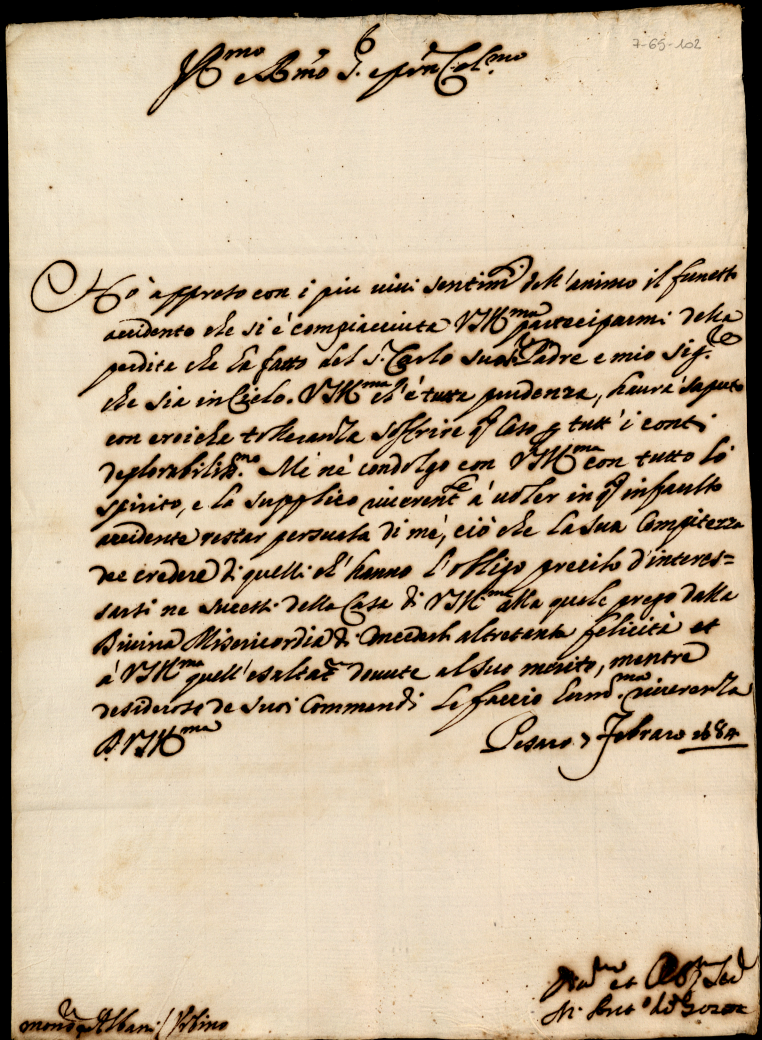 7-65-102
Ill.mo e R.mo S.r e pron Col.mo
Hò appreso con i piu uiui sentim.ti dell'animo il funesto
accidente che si è compiacciuta V S Ill.ma parteciparmi della
perdita che ha fatto del S.r Carlo suo Padre e mio Sig.re
che sia in Cielo. V S Ill.ma ch'è tutta prudenza, haurà saputo
con eroiche tolleranza soffrire q.to Caso p tutt'i conti
deplorabiliss.mo Mè nè condolgo con V S Ill.ma con tutto lo
spirito, e la supplico riuerent.te à uoler in q.to infausto
accidente restar persuasa di mè, ciò che la sua Compitezza
dee credere di quelli ch'hanno l'obligo preciso d'interes=
sarsi ne successi della Casa di V S Ill.ma alla quale prego dalla
Diuina Misericordia di Concederli altretante felicità et
à V S Ill.ma quell'esaltat.ne douute al suo merito, mentre
desideroso de suoi Commandi le faccio hum.ma riuerenza
D. V S Ill.ma
Pesaro 7 Febraro 1684
mons.r Albani / Vrbino